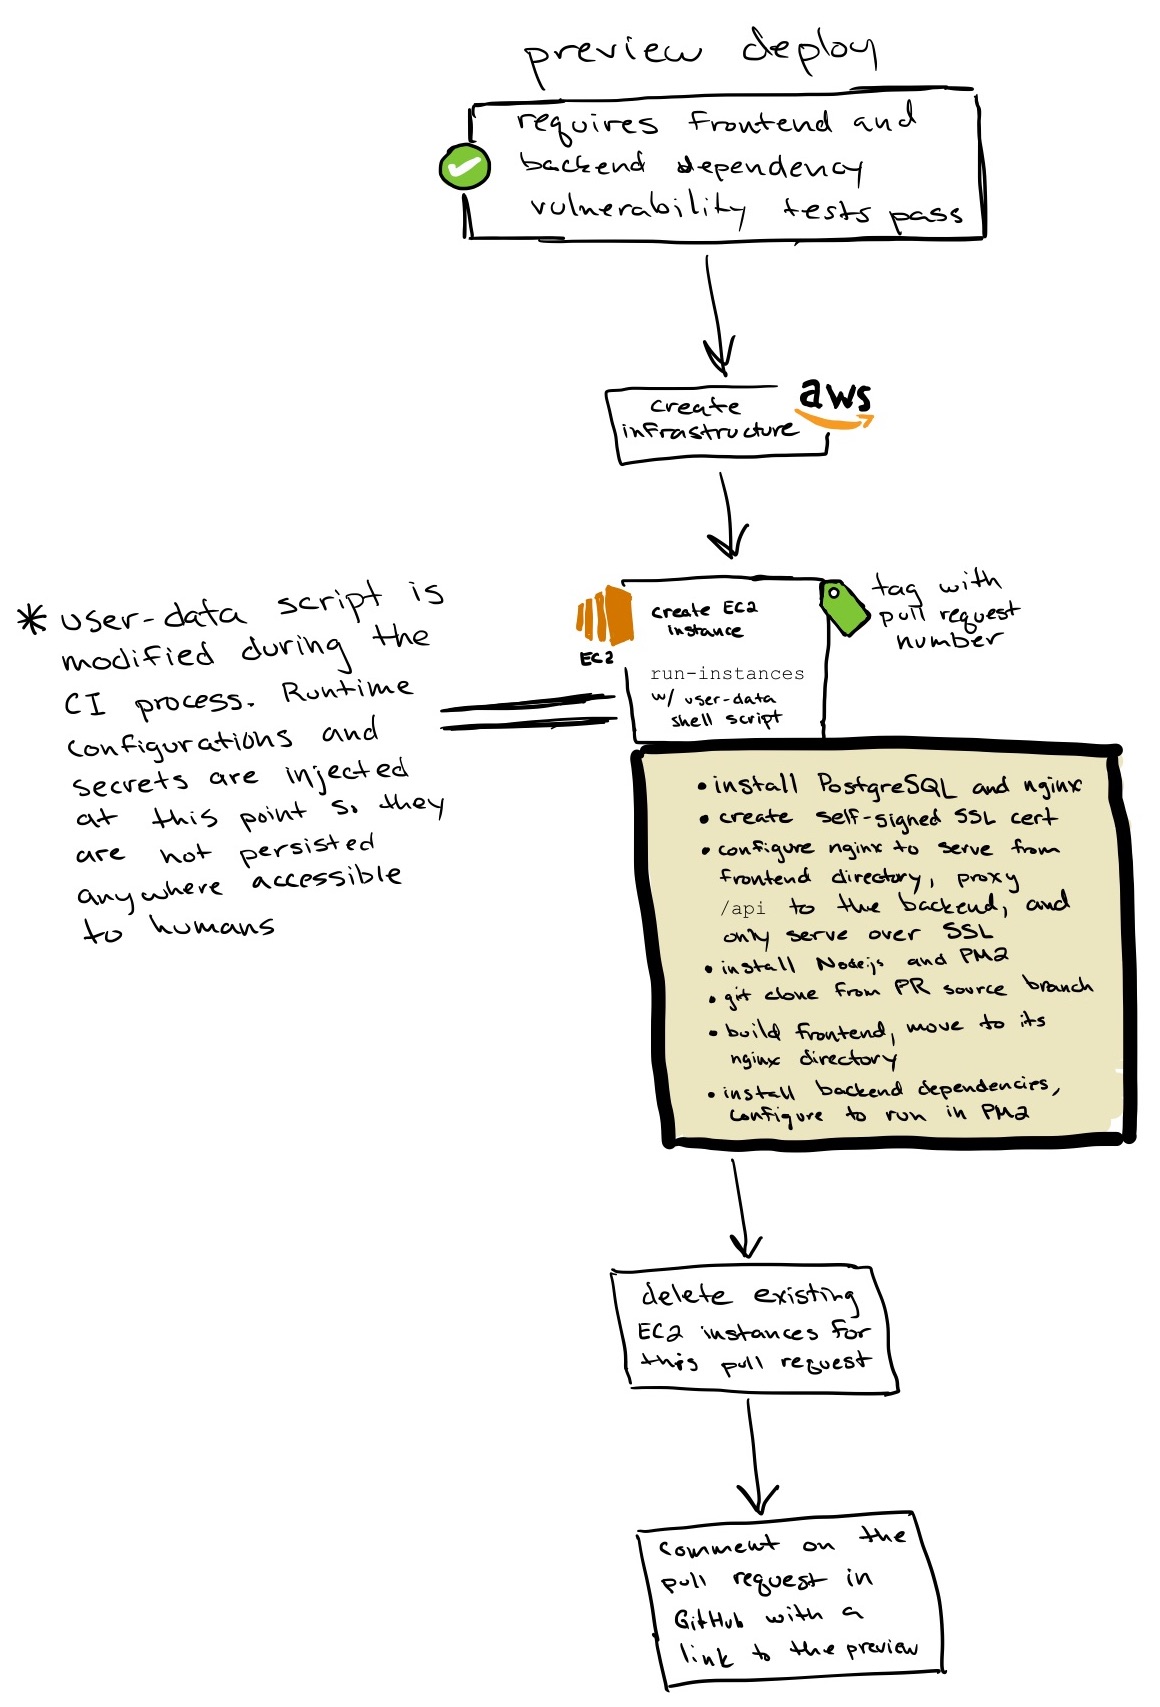 preview deploy
requires frontend and
backend dependency
vulnerability tests pass
create
infrastructure
aws
create EC2
instance
run-instances
w/ user-data
shell script
EC2
tag with
pull request
number
* user-data script is
modified during the
CI process. Runtime
configurations and
secrets are injected
at this point so they
are not persisted
anywhere accessible
to humans
• install PostgreSQL and nginx
• create self-signed SSL cert
• configure nginx to serve from
frontend directory, proxy
/api to the backend, and
only serve over SSL
• install Nodejs and PM2
• git clone from PR source branch
• build frontend, move to its
nginx directory
• install backend dependencies,
configure to run in PM2
delete existing
EC2 instances for
this pull request
comment on the
pull request in
GitHub with a
link to the preview